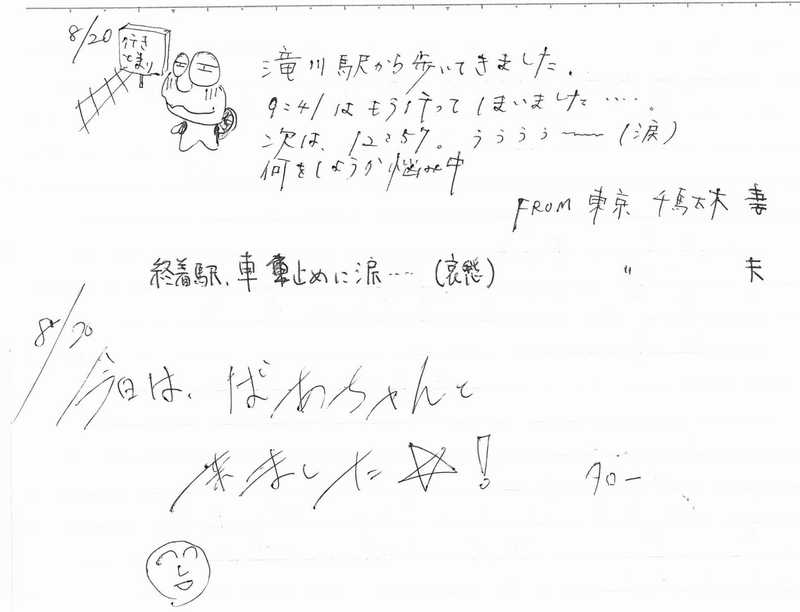 8/20
行き
とまり
滝川駅から歩いてきました。
9:41はもう行ってしまいました‥‥。
次は、12:57。うぅぅぅ〜〜(涙)
何をしようか悩み中
FROM 東京 千駄木 妻
終着駅、車止めに涙‥‥(哀愁) 〃 夫
8/20
今日は、ばあちゃんと
来ました☆!
タロー